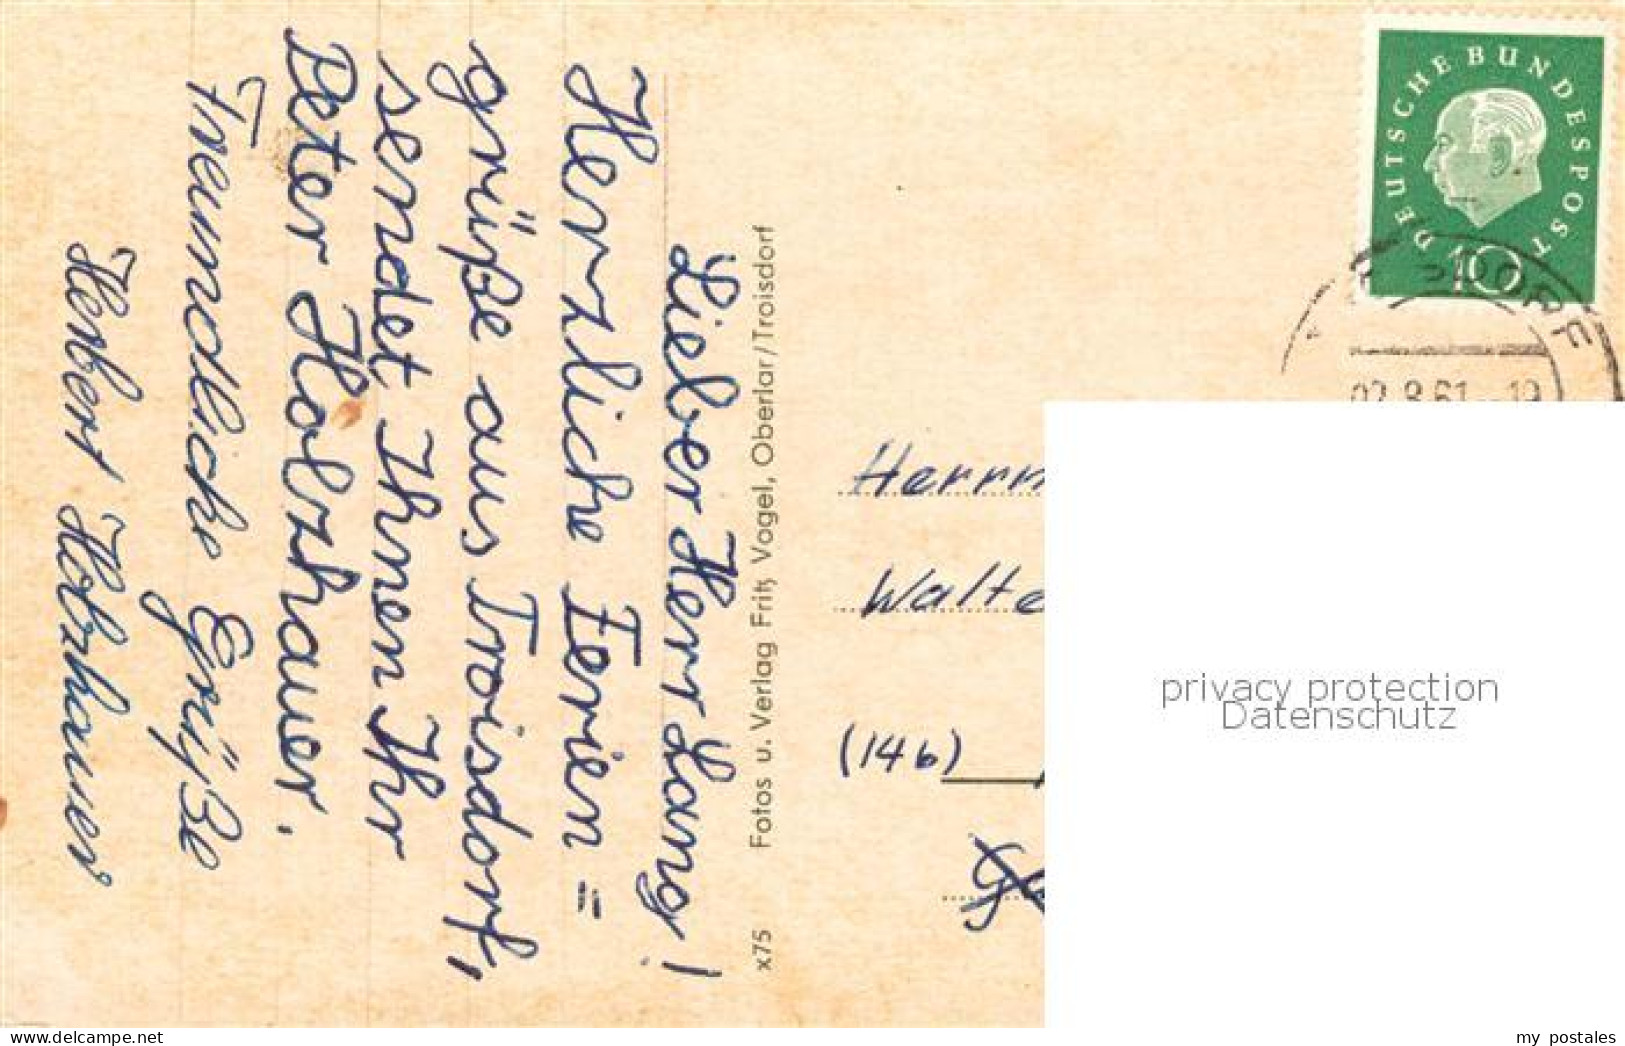 Lieber Herr Lang!
Herzliche Ferien=
grüße aus Troisdorf,
sendet Ihnen Ihr
Peter Holzhauer.
Freundliche Grüße
Herbert Holzhauer
x75 Fotos u. Verlag Fritz Vogel, Oberlar/Troisdorf
DEUTSCHE BUNDESPOST
10
8.61.-19
(14b)
privacy protection
Datenschutz
my postales